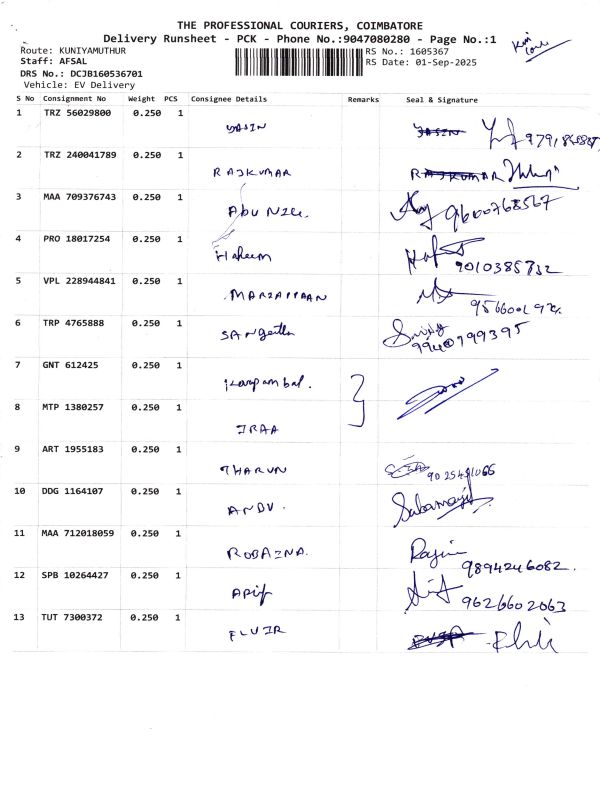 THE PROFESSIONAL COURIERS, COIMBATORE
Delivery Runsheet - PCK - Phone No.:9047080280 - Page No.:1
Route: KUNIYAMUTHUR
RS No.: 1605367
Staff: AFSAL
RS Date: 01-Sep-2025
DRS No.: DCJB160536701
Vehicle: EV Delivery
S No Consignment No Weight PCS Consignee Details Remarks Seal & Signature
1 TRZ 56029800 0.250 1
YASIN YASIN
2 TRZ 240041789 0.250 1
RAJKUMAR RAJKUMAR
3 MAA 709376743 0.250 1
9600768567
4 PRO 18017254 0.250 1
Haleem
9010385732
5 VPL 228944841 0.250 1
6 TRP 4765888 0.250 1
SANgeetha
7 GNT 612425 0.250 1
8 MTP 1380257 0.250 1
9 ART 1955183 0.250 1
THARUN
10 DDG 1164107 0.250 1
11 MAA 712018059 0.250 1
9894246082.
12 SPB 10264427 0.250 1
9626602063
13 TUT 7300372 0.250 1